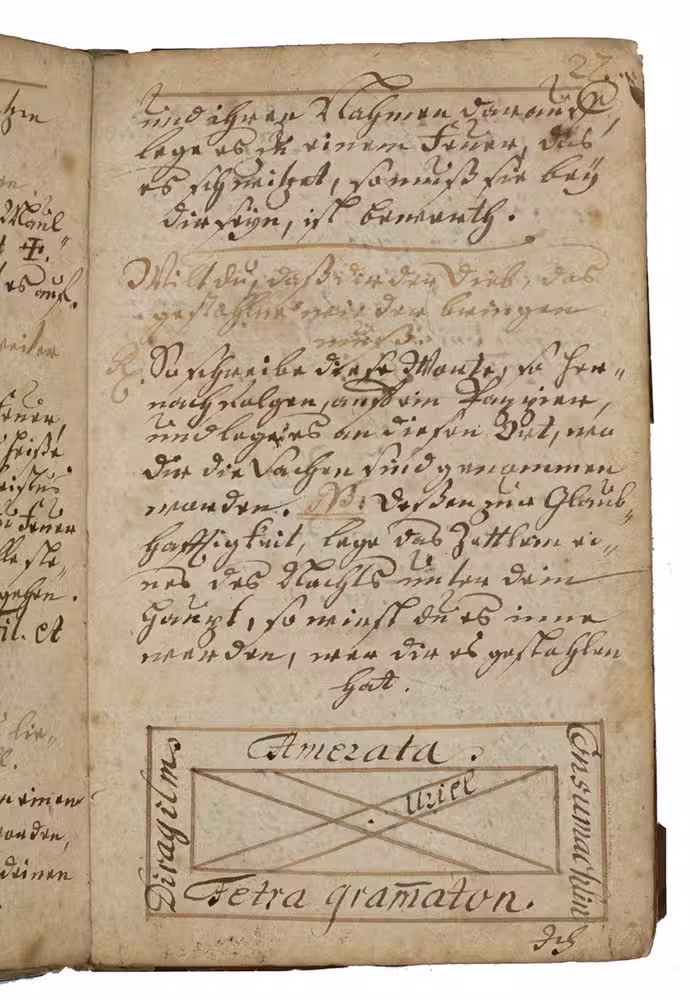 27.
und ihren Nahmen darauf,
lege es zu einem Feuer, das
es schwitzet, so muß sie bey
dir seyn, ist bewerth.
Wilt du, daß dir der Dieb, das
gestohlne wieder bringen
muß.
Rx. So schreibe diese Worte, so her„
nach folgen, auff ein Pappier,
und lege es an diesen Ort, wo
dir die Sachen sind genommen
worden. NB: Deßen zur Glaub„
hafftigkeit, lege das Zettlein ei„
nes des Nachts unter dein
Haupt, so wirst du es inne
werden, wer dir es gestohlen
hat.
Amerata.
Diragilms
Uriel
Ensumachlin
Tetra gram̄aton.
Ich
Maul
✠.
es auf.
Feuer
gehen.
et
einem
worden,
deinen